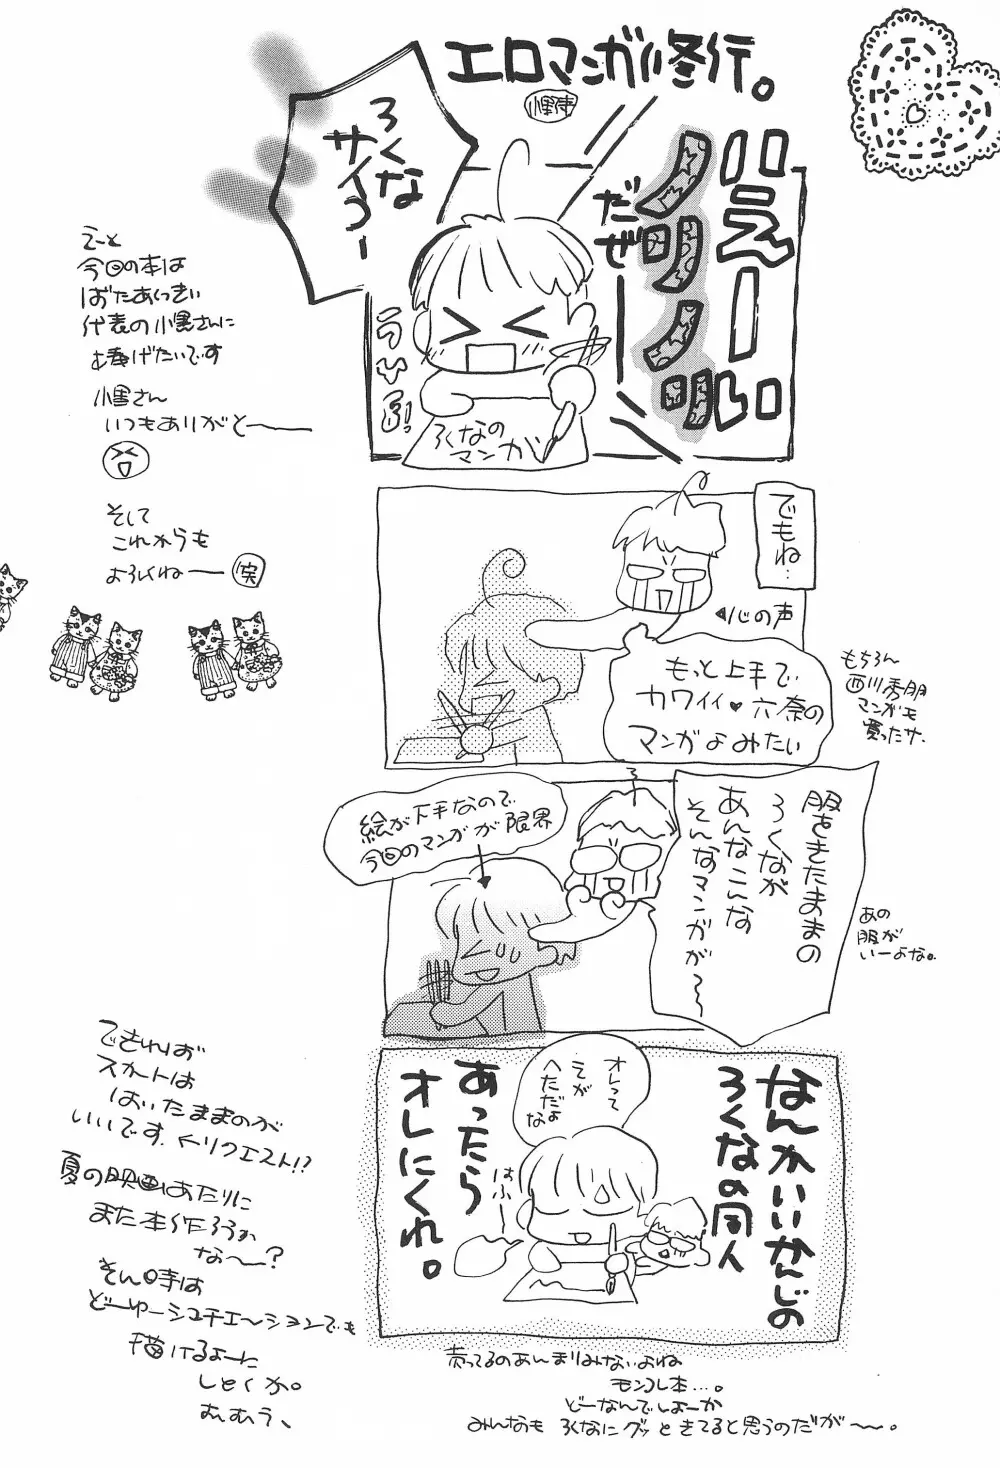 エロマンガ修行。
小野寺
ハえーーい
ノリノリ
だぜ
ろくな
サイコー
うひょ!
ろくなの
マンガ
えーと
今回の本は
ばたあくっきい
代表の小黒さんに
捧げたいです
小黒さん
いつもありがと――
そして
これからも
よろしくね――
笑
でもね…
◀心の声
もっと上手で
カワイイ♥六奈の
マンガよみたい
もちろん
西川秀明
マンガも
買ったサ。
服をきたままの
ろくなが
あんなこんな
そんなマンガが～
絵が下手なので
今回のマンガが限界
あの
服が
いーよな。
なんかいいかんじの
ろくなの同人
あったら
オレにくれ。
オレって
えが
へただよ
な
できれば
スカートは
はいたままのが
いいです。←リクエスト!?
夏の映画はあたりに
また本作ろうか
な――?
その時は
どーゆーシュチエーションでも
描けるよーに
しとくか。
むむう、
売ってるのあんまりみないよね
モンコレ本…。
どーなんでしょーか
みんなも ろくなにグッときてると思うのだが――。